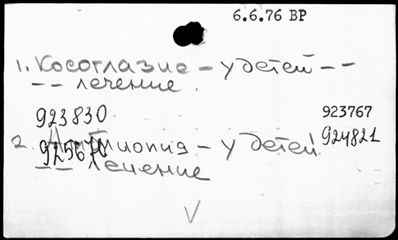 6.6.76 ВР
1. Косоглазие – у детей – –
– – лечение.
923830
923767
924821
2. Амблиопия – у детей
925670
– – лечение
V